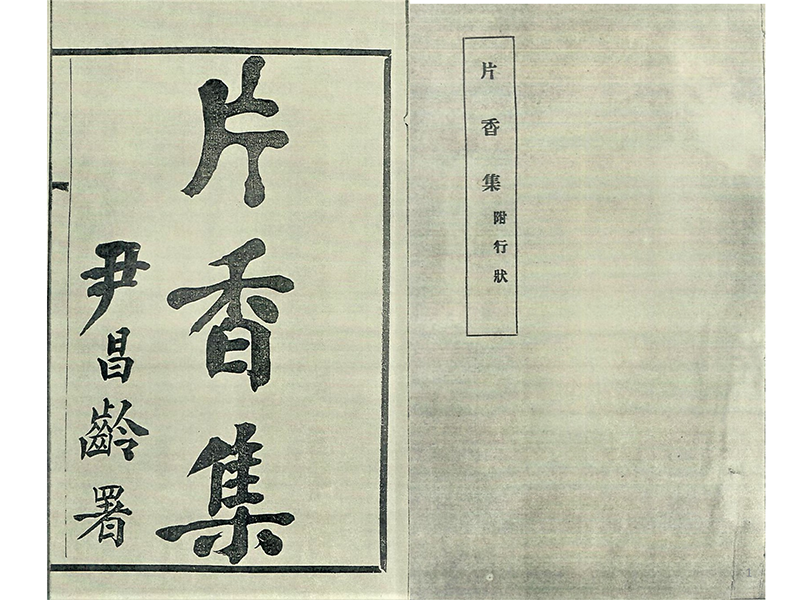 片香集
附行狀
片香集
尹昌齡署